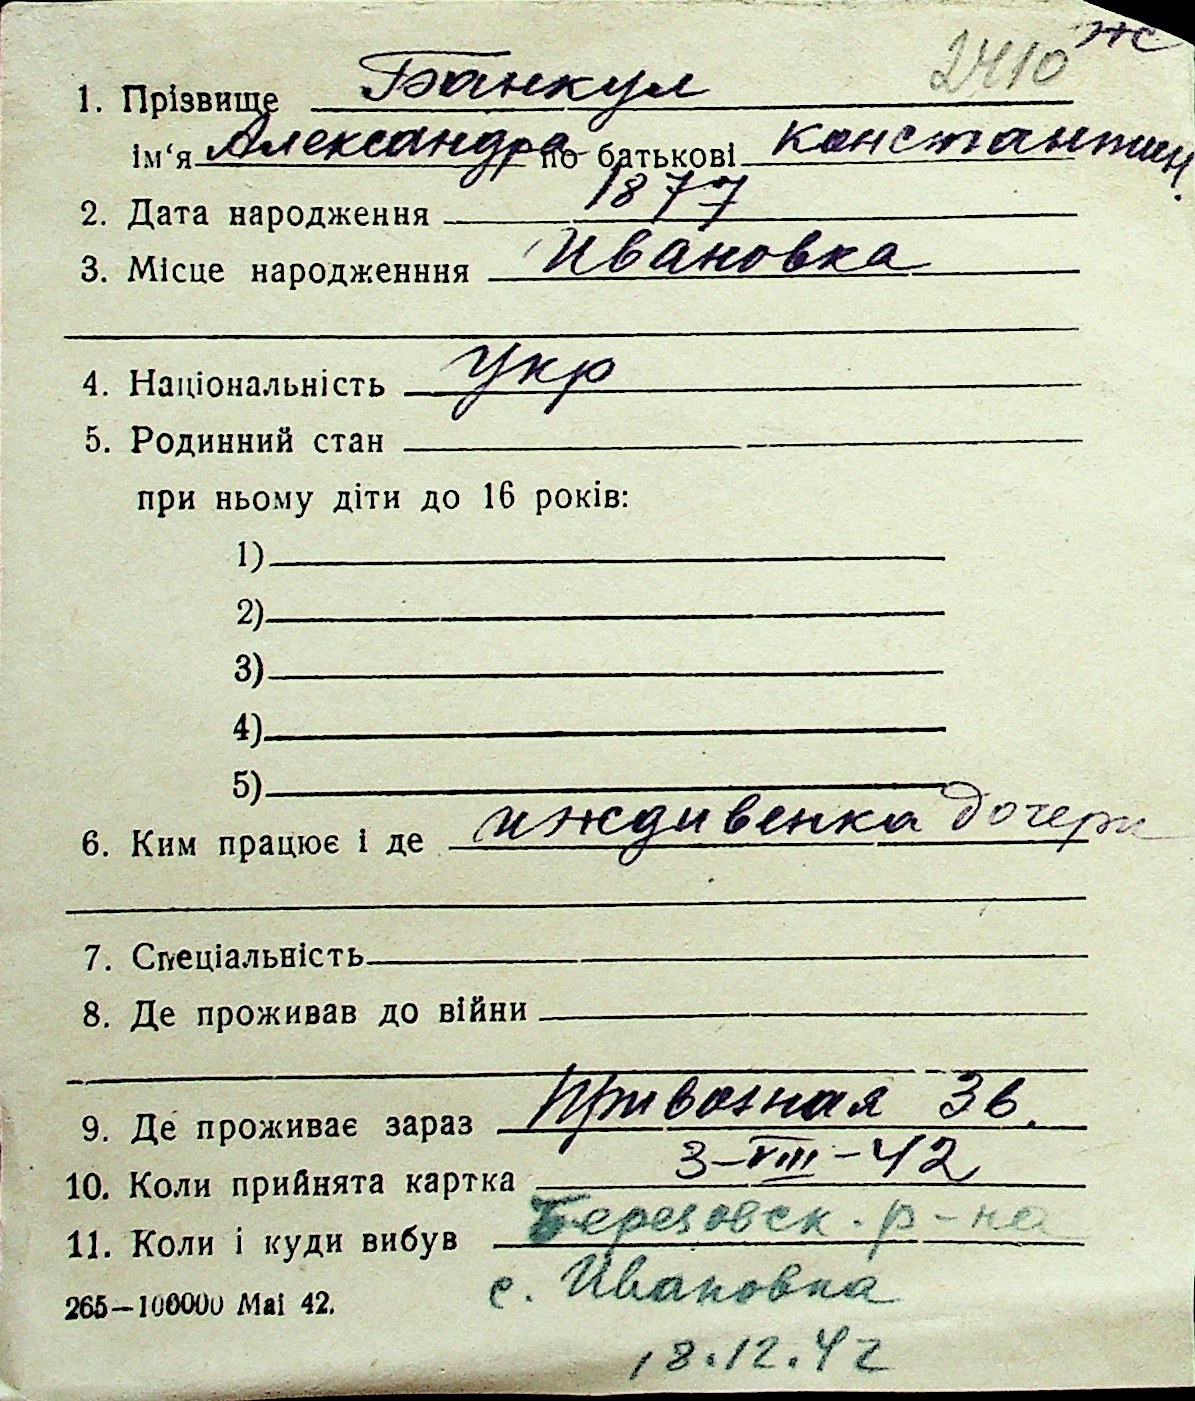 2410 ж
1. Прізвище Банкул
ім‘я Александра по батькові Константин.
2. Дата народження 1877
3. Місце народженння Ивановка
4. Національність Укр
5. Родинний стан
при ньому діти до 16 років:
1)
2)
3)
4)
5)
6. Ким працює і де иждивенка дочери
7. Спеціальність
8. Де проживав до війни
9. Де проживає зараз Привозная 3в.
10. Коли прийнята картка 3-VIII-42
11. Коли і куди вибув Березовск. р-на
с. Ивановка
265—100000 Маі 42.
18.12.42